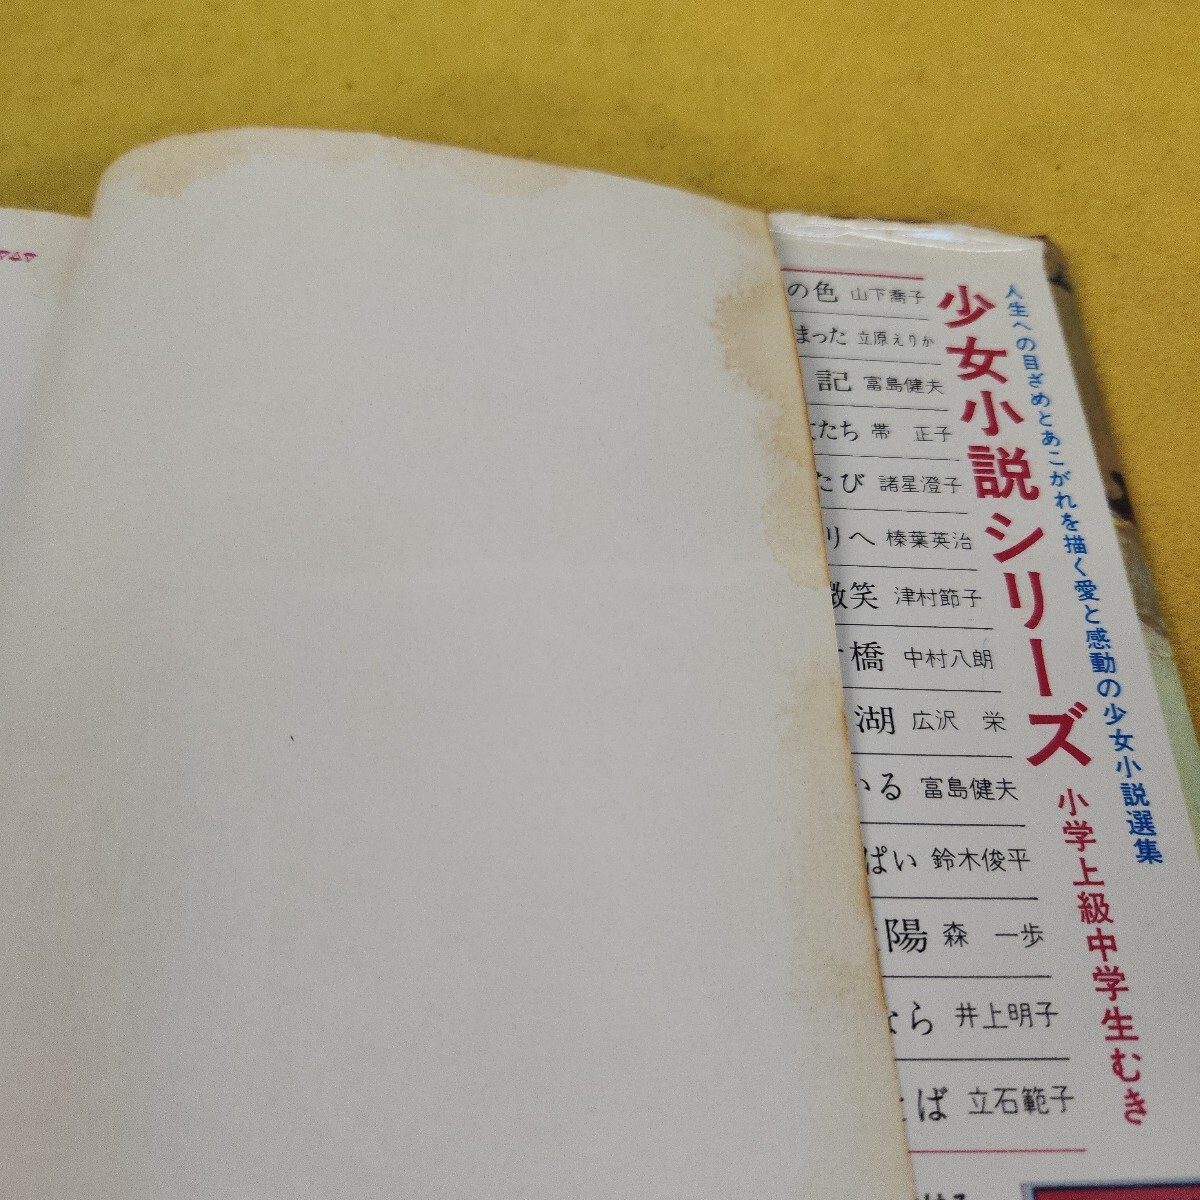 人生への目ざめとあこがれを描く愛と感動の少女小説選集
少女小説シリーズ 小学上級中学生むき
の色 山下喬子
まった 立原えりか
記 富島健夫
たち 帯 正子
たび 諸星澄子
リへ 榛葉英治
微笑 津村節子
橋 中村八朗
湖 広沢 栄
いる 富島健夫
ぱい 鈴木俊平
陽 森 一歩
なら 井上明子
とば 立石範子